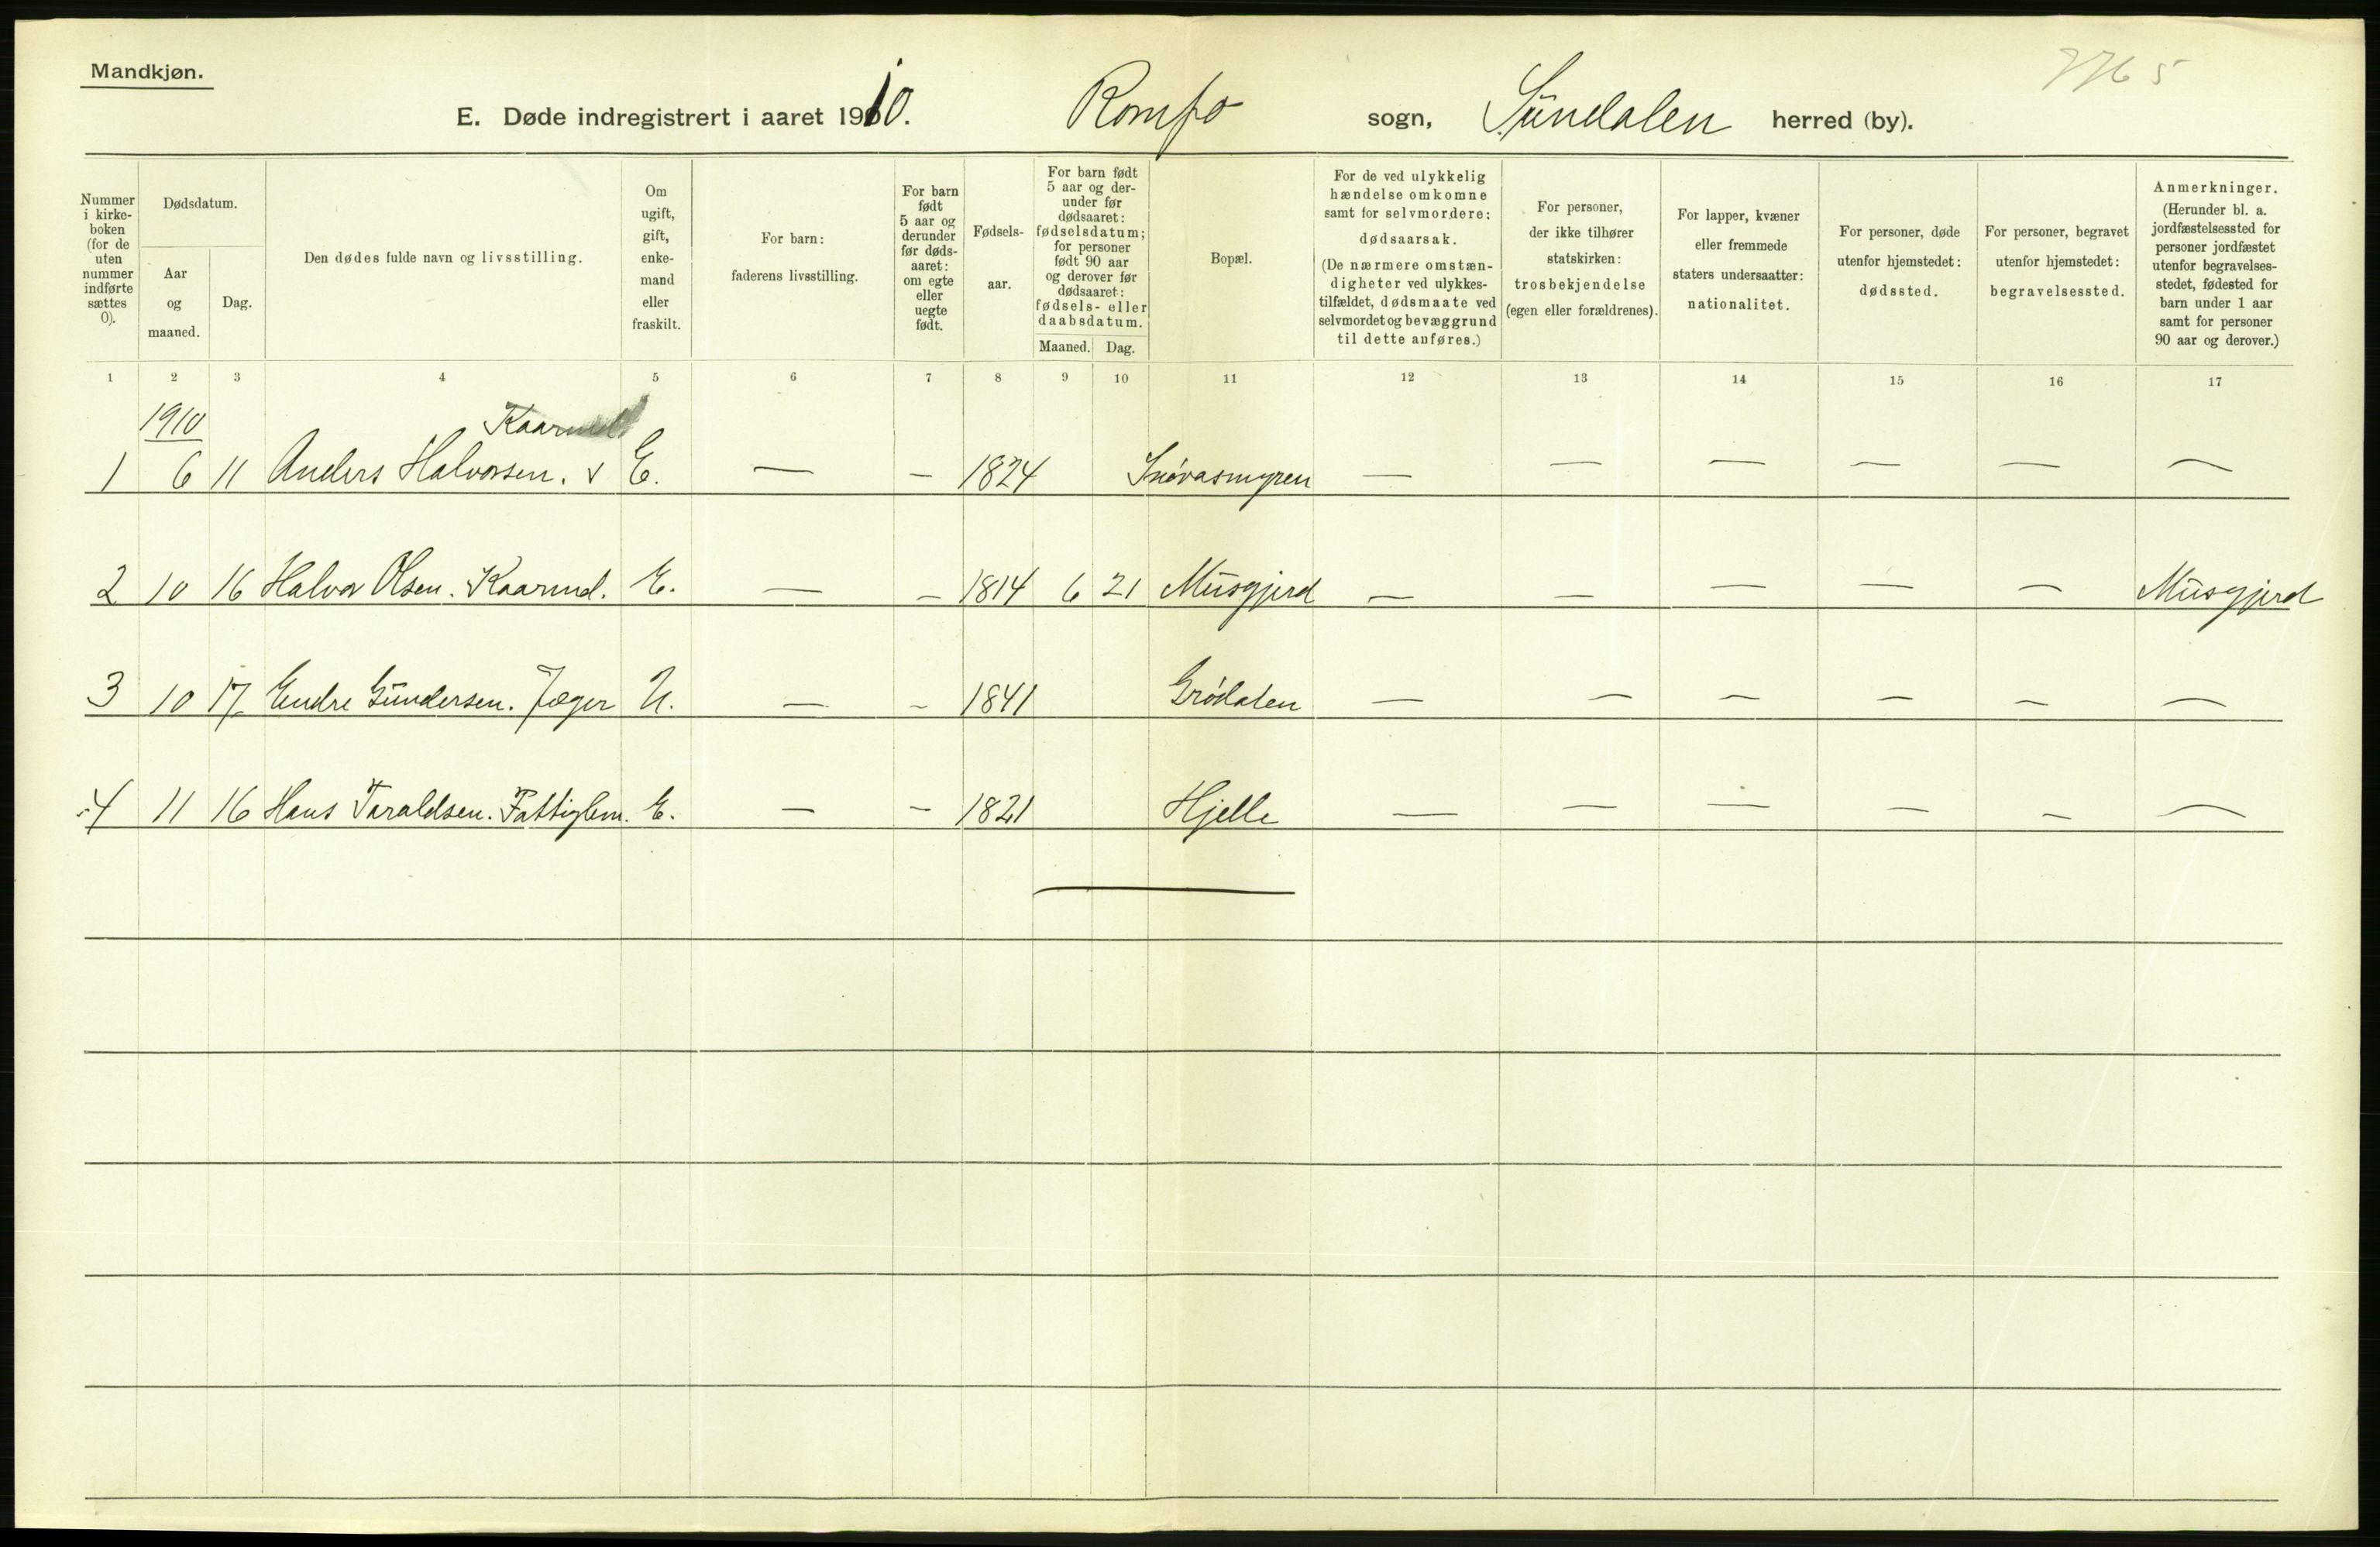 Mandkjøn.
E. Døde indregistrert i aaret 1910. Romfo sogn, Sündalen herred (by).
Nummer i kirke-boken (for de uten nummer indførte sættes 0).
Dødsdatum.
Aar og maaned.
Dag.
Den dødes fulde navn og livsstilling.
Om ugift, gift, enke-mand eller fraskilt.
For barn: faderens livsstilling.
For barn født 5 aar og derunder før døds-aaret: om egte eller uegte født.
Fødsels-aar.
For barn født 5 aar og der-under før dødsaaret: fødselsdatum; for personer født 90 aar og derover før dødsaaret: fødsels- eller daabsdatum.
Maaned. Dag.
Bopæl.
For de ved ulykkelig hændelse omkomne samt for selvmordere: dødsaarsak. (De nærmere omstæn-digheter ved ulykkes-tilfældet, dødsmaate ved selvmordet og bevæggrund til dette anføres.)
For personer, der ikke tilhører statskirken: trosbekjendelse (egen eller forældrenes).
For lapper, kvæner eller fremmede staters undersaatter: nationalitet.
For personer, døde utenfor hjemstedet: dødssted.
For personer, begravet utenfor hjemstedet: begravelsessted.
Anmerkninger. (Herunder bl. a. jordfæstelsessted for personer jordfæstet utenfor begravelses-stedet, fødested for barn under 1 aar samt for personer 90 aar og derover.)
1 2 3 4 5 6 7 8 9 10 11 12 13 14 15 16 17
1910
1 6 11 Anders Halvorsen. v E. — — 1824 — — — — — —
2 10 16 Halvor Olsen. Kaarmd. E. — — 1814 6 21 Müsgjerd — — — — — Müsgjerd
3 10 17 Endre Gündersen. Jæger U. — — 1841 Grødalen — — — — — —
4 11 16 Hans Taraldsen. Fattiglem. E. — — 1821 Hjelle — — — — — —